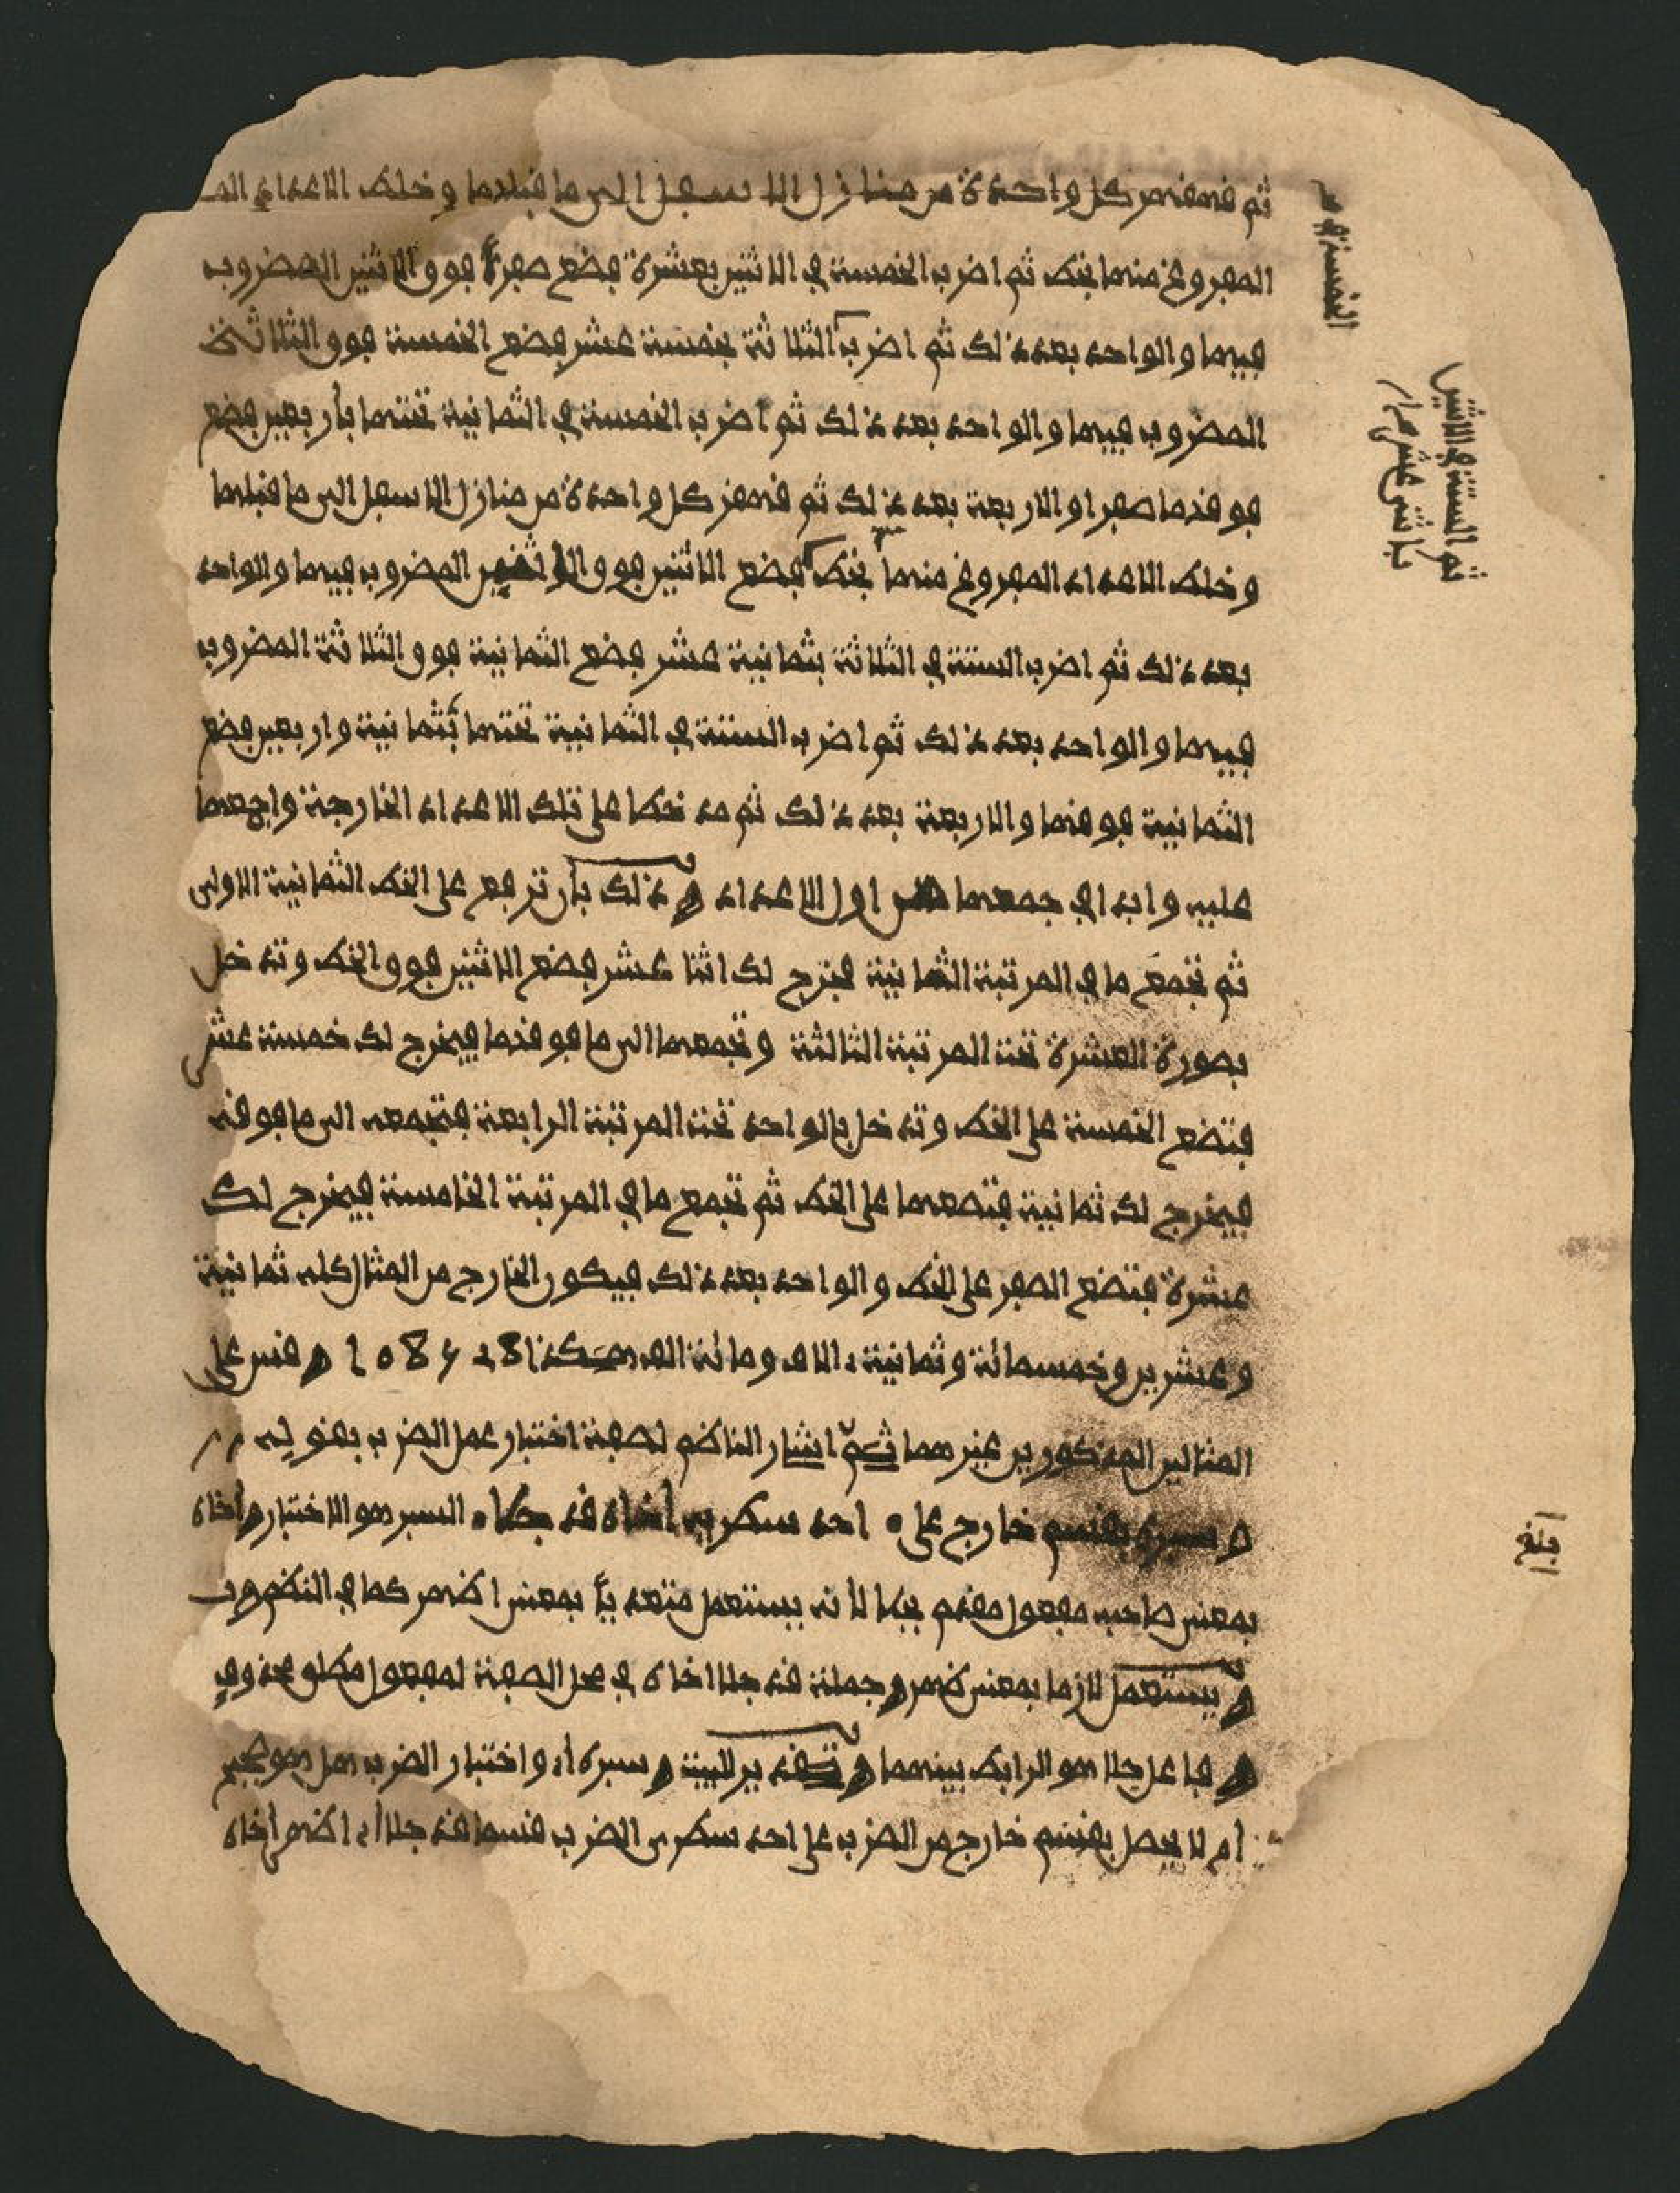 ثم قهقهر كل واحدة من منازل الاسفل الى ما قبلها وخلط الاعداد
المفروغ منها بخط ثم اضرب الخمسة في الاثنين بعشرة فضع صفرا فوق الاثنين المضروب
فيها والواحد بعد ذلك ثم اضرب الثلاثة بخمسة عشر فضع الخمسة فوق الثلاثة
المضروب فيها والواحد بعد ذلك ثم اضرب الخمسة في الثمانية تحتها بأربعين فضع
فوقها صفرا والاربعة بعد ذلك ثم قهقر كل واحدة من منازل الاسفل الى ما قبلها
وخلط الاعداد المفروغ منها بخط فضع الاثنين فوق الاثنين المضروب فيها والواحد
بعد ذلك ثم اضرب الستة في الثلاثة بثمانية عشر فضع الثمانية فوق الثلاثة المضروب
فيها والواحد بعد ذلك ثم اضرب الستة في الثمانية تحتها بثمانية واربعين فضع
الثمانية فوقها والاربعة بعد ذلك ثم مد خطا على تلك الاعداد الخارجة واجمعها
عليه وابدا في جمعها من اول الاعداد وذلك بأن ترفع على الخط الثمانية الاولى
ثم تجمع ما في المرتبة الثانية فيخرج لك اثنا عشر فضع الاثنين فوق الخط وتدخل
بصورة العشرة تحت المرتبة الثالثة وتجمعها الى ما فوقها فيخرج لك خمسة عشر
فتضع الخمسة على الخط وتدخل بالواحد تحت المرتبة الرابعة فتجمعه الى ما فوقه
فيخرج لك ثمانية فتضعها على الخط ثم تجمع ما في المرتبة الخامسة فيخرج لك
عشرة فتضع الصفر على الخط والواحد بعد ذلك فيكون الخارج من المثال كله ثمانية
وعشرين وخمسمائة وثمانية ءالاف ومائة الف هكذا 108528 وقس على
المثالين المذكورين غيرهما ثم اشار الناظم لصفة اختبار عمل الضرب بقوله
وسبره بقسم خارج على احد سطريه أخاه قد جلا السبر هو الاختبار وأخاه
بمعنى صاحبه مفعول مقدم بجلا لأنه يستعمل متعديا بمعنى اظهر كما في النظم
ويستعمل لازما بمعنى ظهر وجملة قد جلا اخاه في محل الصفة لمفعول مطلق محذوف
وفاعل جلا هو الرابط بينهما وتقدير البيت وسبره أي واختبار الضرب هل هو صحيح
أم لا يحصل بقسم خارج من الضرب على احد سطري الضرب قسما قد جلا أي اظهر أخاه
ثم الستة في الاثنين
باثني عشر
بلغ